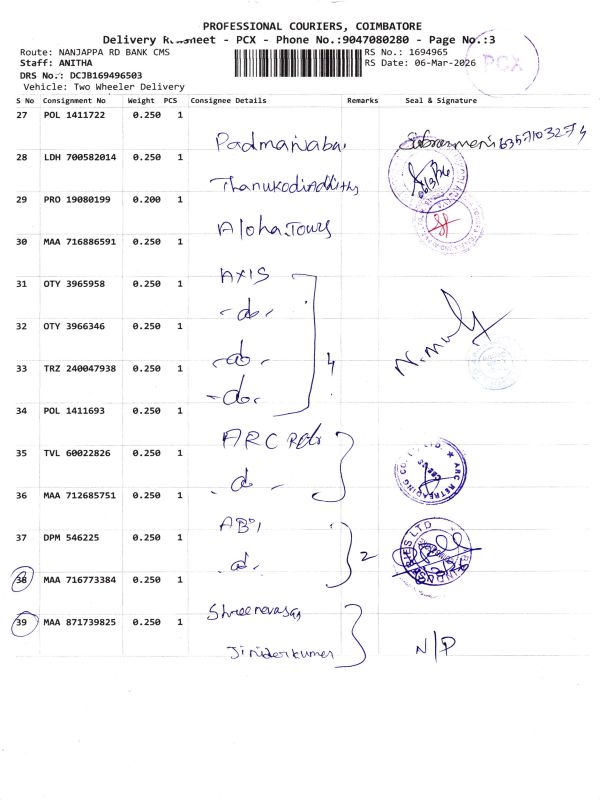 PROFESSIONAL COURIERS, COIMBATORE
Delivery Runsheet - PCX - Phone No.:9047080280 - Page No.:3
Route: NANJAPPA RD BANK CMS
RS No.: 1694965
Staff: ANITHA
RS Date: 06-Mar-2026
PCX
DRS No.: DCJB169496503
Vehicle: Two Wheeler Delivery
S No Consignment No Weight PCS Consignee Details Remarks Seal & Signature
27 POL 1411722 0.250 1
Padmanaba 6357103274
28 LDH 700582014 0.250 1
29 PRO 19080199 0.200 1
Aloha Tours
30 MAA 716886591 0.250 1
AXIS
31 OTY 3965958 0.250 1
-do-
32 OTY 3966346 0.250 1
-do- 4
33 TRZ 240047938 0.250 1
-do-
34 POL 1411693 0.250 1
ARC Retr
35 TVL 60022826 0.250 1
ARC RETREADING CO
-d-
36 MAA 712685751 0.250 1
37 DPM 546225 0.250 1
2
-d-
38 MAA 716773384 0.250 1
39 MAA 871739825 0.250 1
Shreenevasan
Jinider kumar N/P